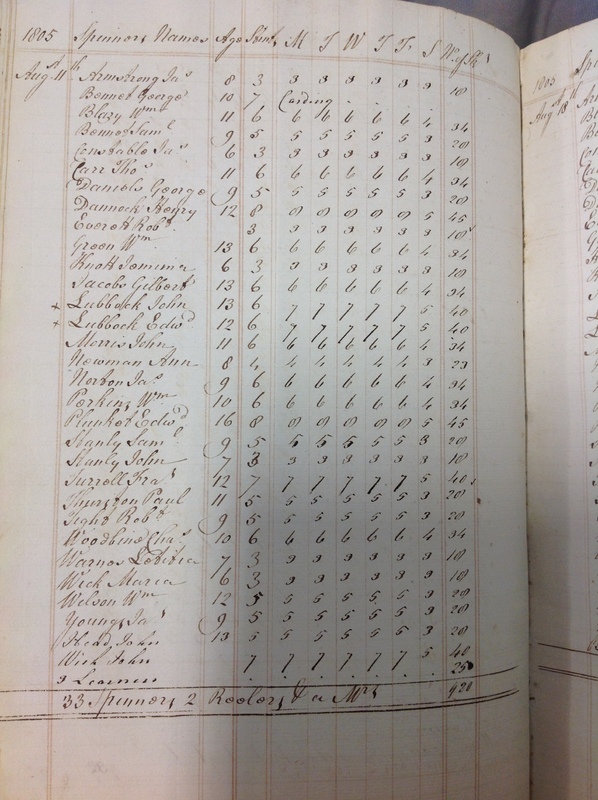 1805 Spinners Names Age Stint M T W T Fr S
Augst 11th Armstrong Jas 8 3 3 3 3 3 3 3 18
Bennet George 10 7 Carding . . . .
Blazy Wm 11 6 6 6 6 6 6 4 34
Bennet Saml 9 5 5 5 5 5 5 3 28
Constable Jas 6 3 3 3 3 3 3 3 18
Carr Thos 11 6 6 6 6 6 6 4 34
Daniels George 9 5 5 5 5 5 5 3 28
Dannock Henry 12 8 8 8 8 8 8 5 45
Everett Robt 3 3 3 3 3 3 3 18
Green Wm 13 6 6 6 6 6 6 4 34
Knott Jemima 6 3 3 3 3 3 3 3 18
Jacobs Gilbert 13 6 6 6 6 6 6 4 34
+ Lubbock John 13 6 7 7 7 7 7 5 40
+ Lubbock Edwd 12 6 7 7 7 7 7 5 40
Morris John 11 6 6 6 6 6 6 4 34
Newman Ann 8 4 4 4 4 4 4 3 23
Norton Jas 9 6 6 6 6 6 6 4 34
Perkins Wm 10 6 6 6 6 6 6 4 34
Plunket Edwd 16 8 8 8 8 8 8 5 45
Stanly Saml 9 5 5 5 5 5 5 3 28
Stanly John 7 3 3 3 3 3 3 3 18
Surroll Fras 12 7 7 7 7 7 7 5 40
Thurston Paul 11 5 5 5 5 5 5 3 28
Tight Robt 9 5 5 5 5 5 5 3 28
Woodbine Chas 10 6 6 6 6 6 6 4 34
Warnes Letitia 7 3 3 3 3 3 3 3 18
Wick Maria 6 3 3 3 3 3 3 3 18
Wilson Wm 12 5 5 5 5 5 5 3 28
Youngs Jas 9 5 5 5 5 5 5 3 28
Head John 13 5 5 5 5 5 5 3 28
Wick John 7 7 7 7 7 7 5 40
3 Learners . . . . . . . 25
33 Spinners 2 Reelers & a Mrs 920
1805
Augst 18th